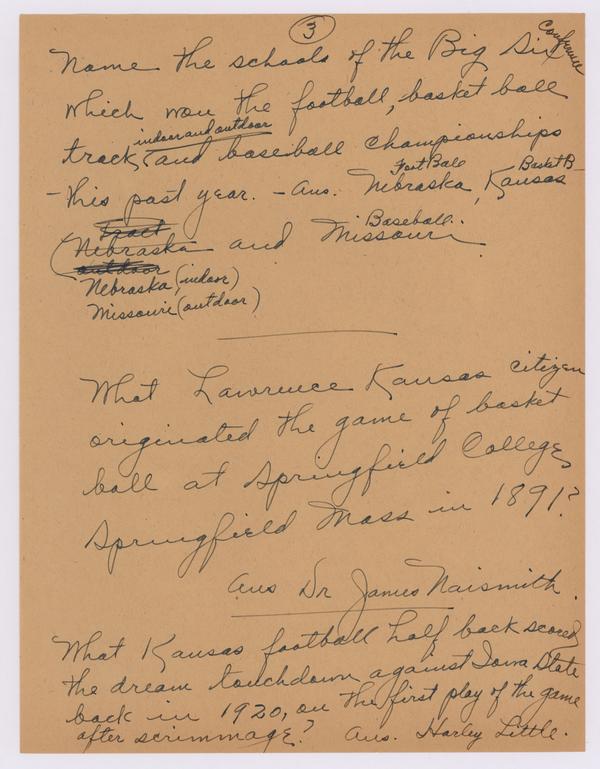 3
Name the schools of the Big Six Conference
which won the football, basket ball
indoor and outdoor
track, and baseball championships
Foot Ball Basket B
- this past year. - Ans. Nebraska, Kansas
Tract Baseball.
(Nebraska and Missouri.
outdoor
Nebraska (indoor)
Missouri (outdoor)
What Lawrence Kansas citizen
originated the game of basket
ball at Springfield College,
Springfield Mass in 1891?
Ans Dr James Naismith.
What Kansas football half back scored
the dream touchdown against Iowa State
back in 1920, on the first play of the game
after scrimmage? Ans. Harley Little.